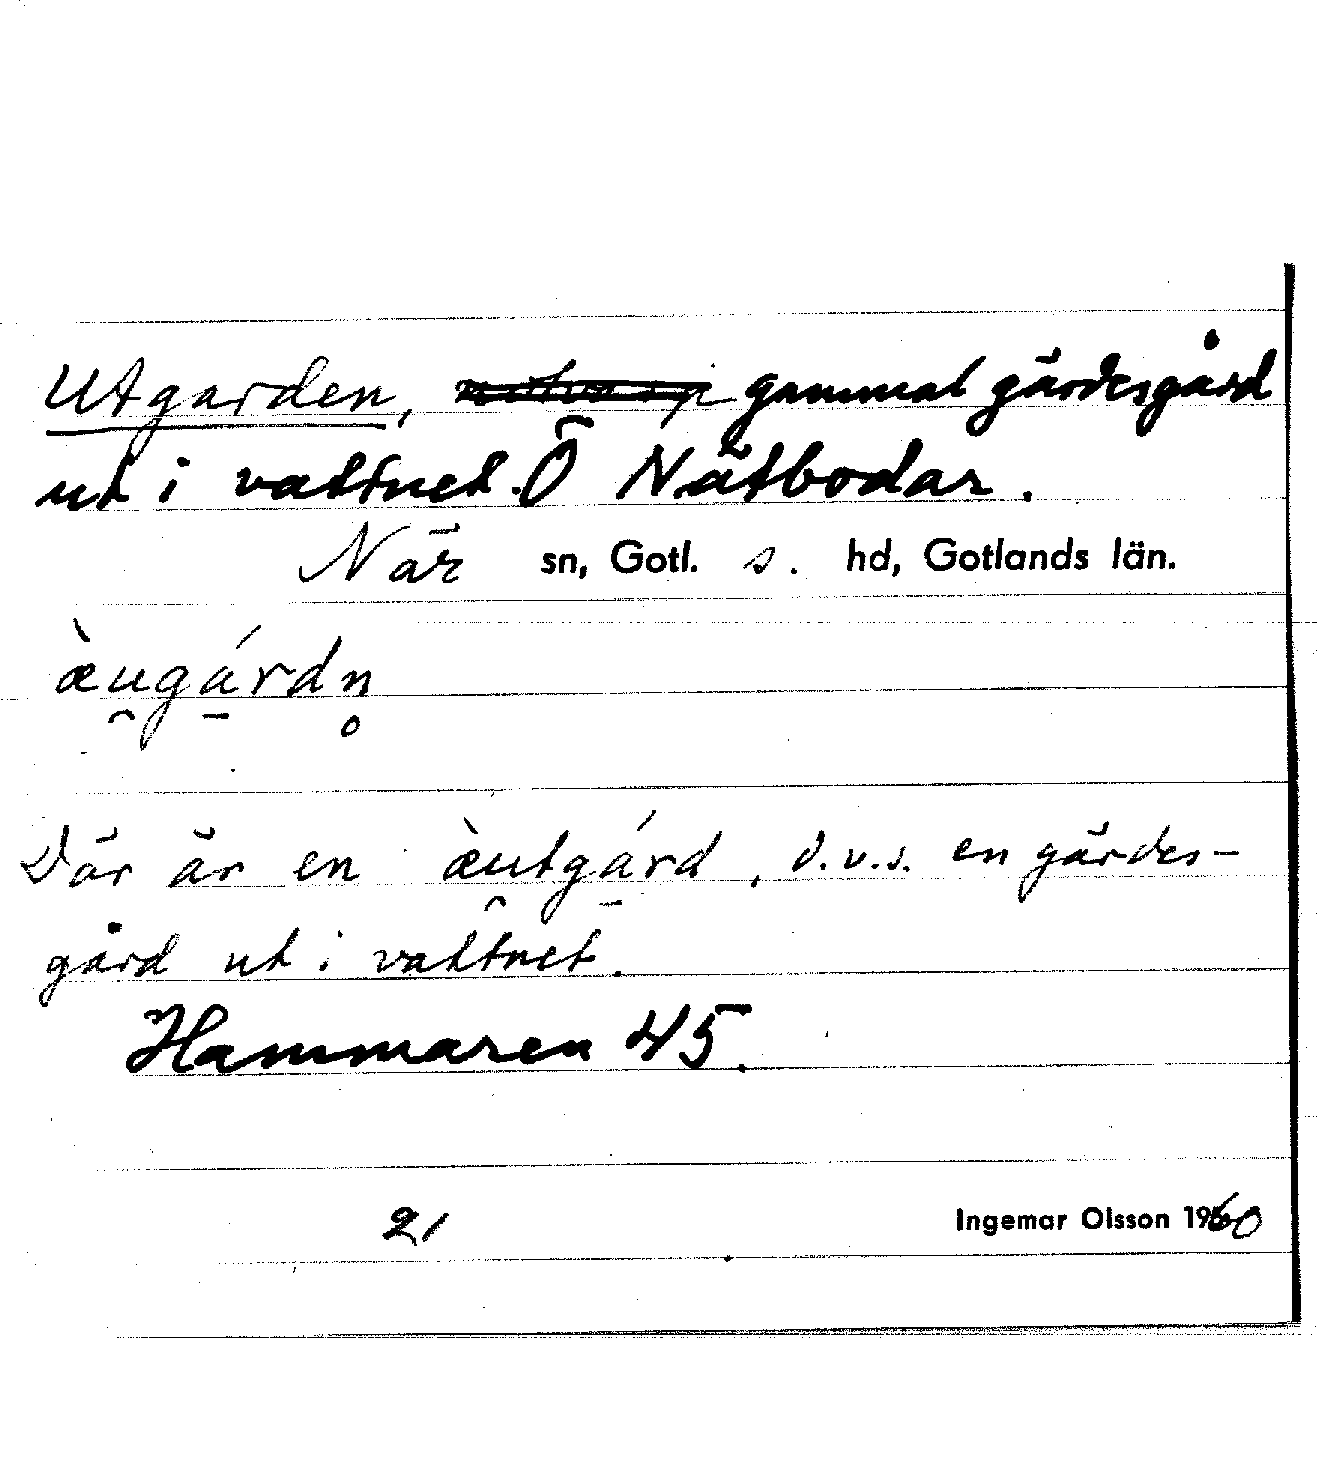 Utgarden, gammal gärdesgård
ut i vattnet. Ö Nätbodar.
När sn, Gotl. s. hd, Gotlands län.
æ̀u̯gá̱rdn̥
Där är en æ̀u̯tgá̱rd, d.v.s. en gärdes-
gård ut i vattnet.
Hammaren 45.
21 Ingemar Olsson 1960